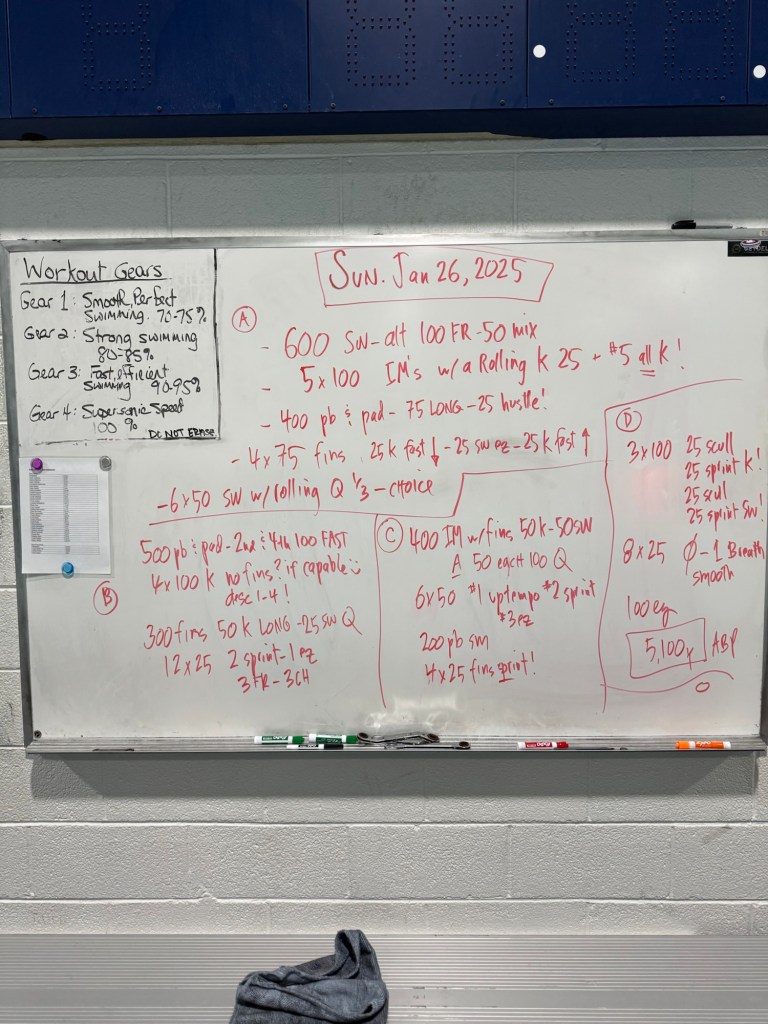 Workout Gears
Gear 1: Smooth, Perfect
Swimming. 70-75%
Gear 2: Strong swimming
80-85%
Gear 3: Fast, efficient
Swimming 90-95%
Gear 4: Supersonic Speed
100 %
DO NOT ERASE
Sun. Jan 26, 2025
A
- 600 SW-alt 100 FR-50 mix
- 5x100 IM's w/a Rolling K 25 + #5 all K!
- 400 pb & pad - 75 LONG - 25 hustle!
- 4x75 fins 25k fast ↓ - 25 sw ez - 25k fast ↑
- 6x50 SW w/rolling Q 1/3 - choice
B
500 pb & pad - 2nd & 4th 100 FAST
4x100 k no fins? if capable
desc 1-4!
300 fins 50 k LONG - 25 SW Q
12x25 2 sprint - 1 ez
3 FR - 3 CH
C
400 IM w/fins 50k - 50SW
A 50 each 100 Q
6x50 #1 uptempo #2 sprint
#3 ez
200 pb sm
4x25 fins sprint!
D
3x100 25 scull
25 sprint K!
25 scul
25 sprint SW!
8x25 Ø-1 Breath
smooth
100 ez
5,100y ABP